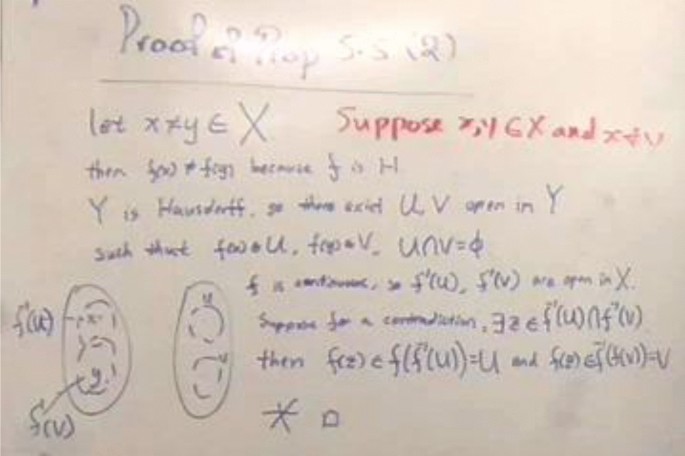 Proof of Prop 5.5 (2)
let x≠y ∈ X Suppose x,y ∈ X and x≠y
then f(x) ≠ f(y) because f is H
Y is Hausdorff, so there exist U, V open in Y
such that f(x)∈U, f(y)∈V, U∩V=ϕ
f is continuous, so f⁻¹(U), f⁻¹(V) are open in X.
Suppose for a contradiction, ∃z∈f⁻¹(U)∩f⁻¹(V)
then f(z)∈f(f⁻¹(U))=U and f(z)∈f⁻¹(f(V))=V
※ □
f⁻¹(U) x U
y V
f⁻¹(V)